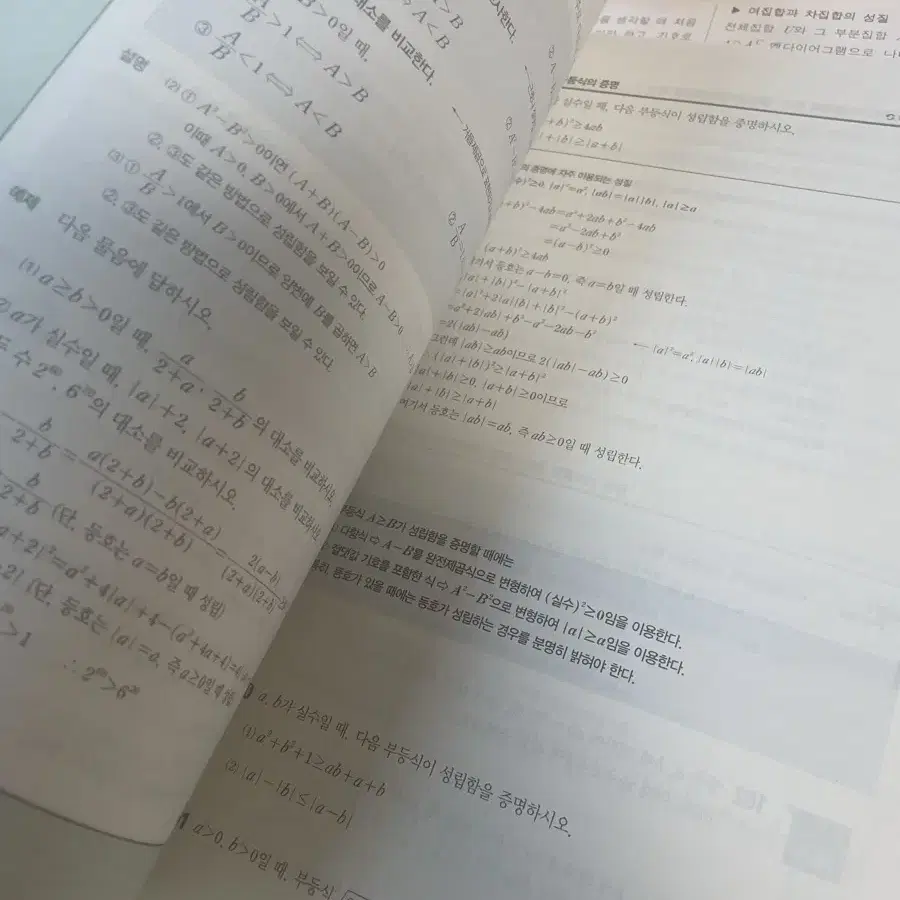 A>B
⇔ A<B
B>0일 때,
>1 ⇔ A>B
③ A/B<1 ⇔ A<B
대소를 비교한다.
설명
(2) ① A²-B²>0이면 (A+B)(A-B)>0
이때 A>0, B>0에서 A+B>0이므로 A-B>0
②, ③도 같은 방법으로 성립함을 보일 수 있다.
(3) ① A/B>1에서 B>0이므로 양변에 B를 곱하면 A>B
②, ③도 같은 방법으로 성립함을 보일 수 있다.
예제
다음 물음에 답하시오.
(1) a≥b>0일 때, a/(2+a), b/(2+b)의 대소를 비교하시오.
a가 실수일 때, |a|+2, |a+2|의 대소를 비교하시오.
수 2⁶⁰, 6²⁰의 대소를 비교하시오.
b/(2+b)=(a(2+b)-b(2+a))/((2+a)(2+b))=2(a-b)/((2+a)(2+b))
b/(2+b) (단, 등호는 a=b일 때 성립)
a+2|²=a²+4|a|+4-(a²+4a+4)
2| (단, 등호는 |a|=a, 즉 a≥0일 때
>1
∴ 2⁶⁰>6²⁰
▶ 여집합과 차집합의 성질
전체집합 U와 그 부분집합
벤다이어그램으로
등식의 증명
실수일 때, 다음 부등식이 성립함을 증명하시오.
+b)²≥4ab
+|b|≥|a+b|
증명에 자주 이용되는 성질
)²≥0, |a|²=a², |ab|=|a||b|, |a|≥a
+b)²-4ab=a²+2ab+b²-4ab
=a²-2ab+b²
=(a-b)²≥0
(a+b)²≥4ab
서 등호는 a-b=0, 즉 a=b일 때 성립한다.
|a|+|b|)²-|a+b|²
=|a|²+2|a||b|+|b|²-(a+b)²
=a²+2|ab|+b²-a²-2ab-b² ← |a|²=a², |a||b|=|ab|
=2(|ab|-ab)
그런데 |ab|≥ab이므로 2(|ab|-ab)≥0
(|a|+|b|)²≥|a+b|²
|a|+|b|≥0, |a+b|≥0이므로
|a|+|b|≥|a+b|
여기서 등호는 |ab|=ab, 즉 ab≥0일 때 성립한다.
부등식 A≥B가 성립함을 증명할 때에는
다항식 ⇨ A-B를 완전제곱식으로 변형하여 (실수)²≥0임을 이용한다.
절댓값 기호를 포함한 식 ⇨ A²-B²으로 변형하여 |a|≥a임을 이용한다.
특히, 등호가 있을 때에는 등호가 성립하는 경우를 분명히 밝혀야 한다.
a, b가 실수일 때, 다음 부등식이 성립함을 증명하시오.
(1) a²+b²+1≥ab+a+b
(2) |a|-|b|≤|a-b|
1 a>0, b>0일 때, 부등식